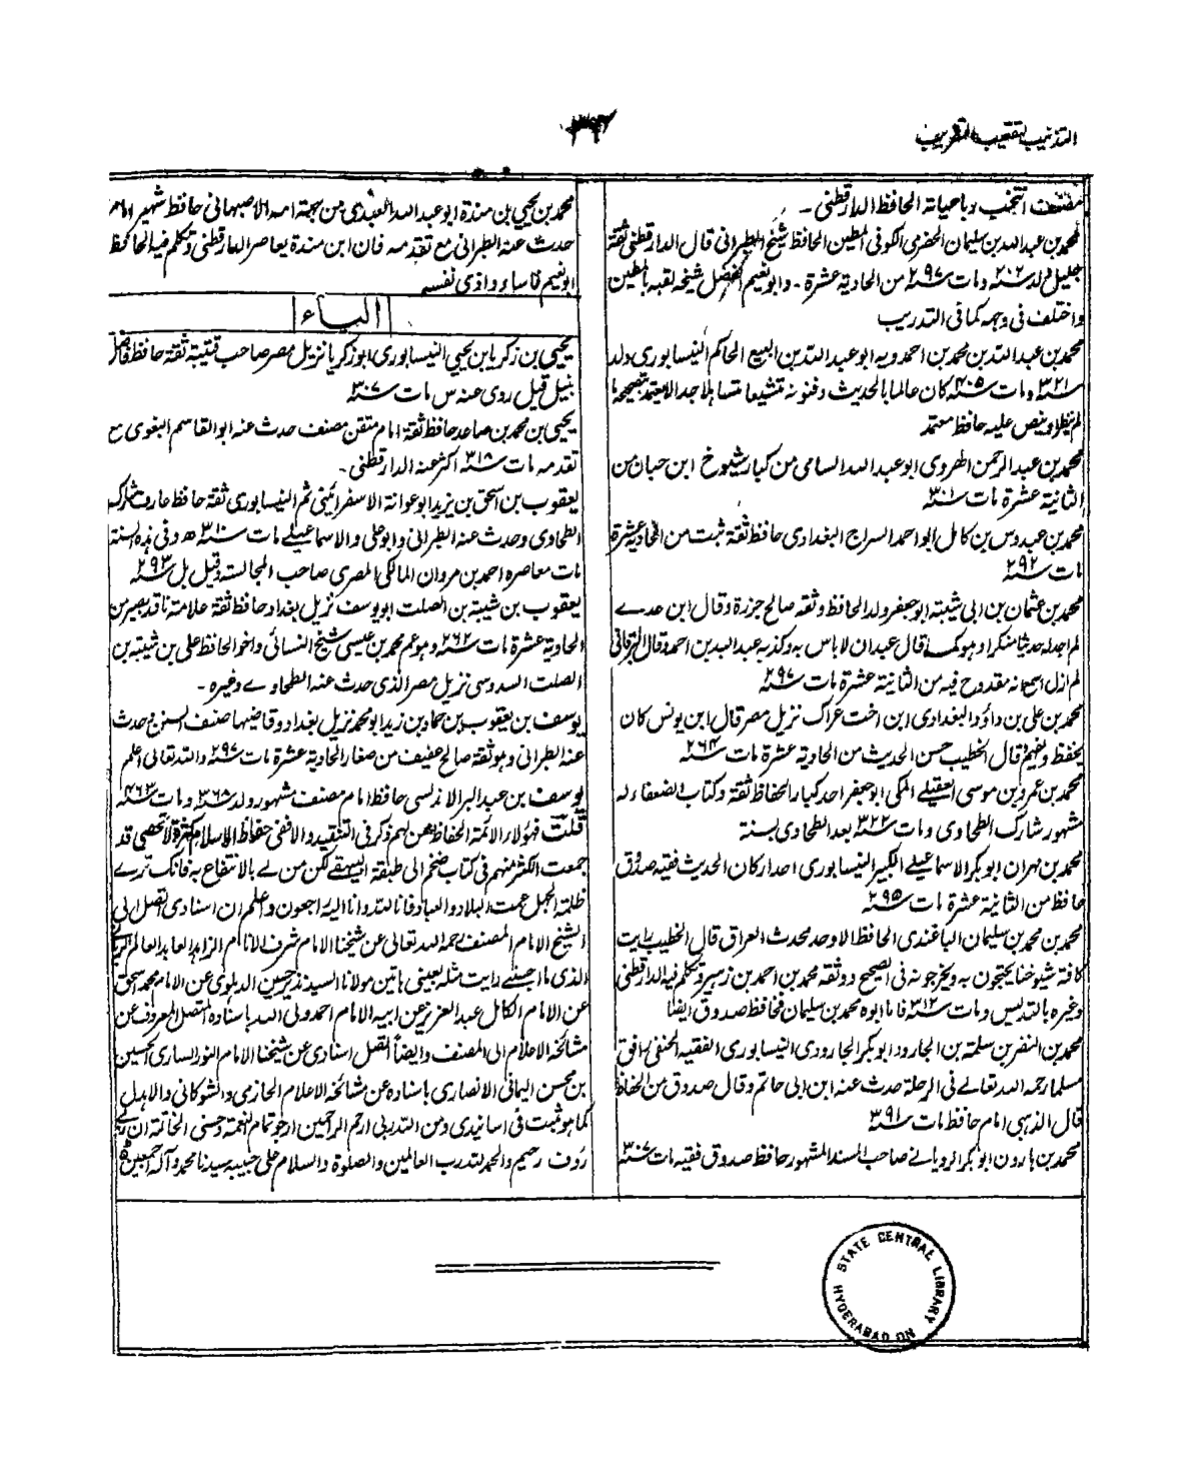 التذنيب لتعقيب التقريب
٣٣٤
مصنفات انتخب وباحياة الحافظ الدارقطنى -
محمد بن عبد الله بن سليمان الحضرمى الكوفى المطين الحافظ شيخ الطبرانى قال الدارقطنى ثقة
جليل ولد سنة ٢٠٢ ومات سنة ٢٩٧ من الحادية عشرة - وابو نعيم الفضل شيخه لقبه بالمطين
واختلف فى وجهه كما فى التدريب
محمد بن عبد الله بن محمد بن احمدويه ابو عبد الله بن البيع الحاكم النيسابورى ولد
سنة ٣٢١ ومات سنة ٤٠٥ كان عالما بالحديث وفنونه متشيعا متساهلا جدا لا يعتمد تصحيحه ما
لم ينظر او ينص عليه حافظ معتمد
محمد بن عبد الرحمن الهروى ابو عبد الله السامى من كبار شيوخ ابن حبان من
الثانية عشرة مات سنة ٣٠١
محمد بن عبدوس بن كامل ابو احمد السراج البغدادى حافظ ثقة ثبت من الحادية عشرة
مات سنة ٢٩٢
محمد بن عثمان بن ابى شيبة ابو جعفر ولد الحافظ وثقه صالح جزرة وقال ابن عدے
لم اجد له حديثا منكرا وهو كما قال عبدان لا باس به وكذبه عبد الله بن احمد وقال البرقانى
لم ازل اسمع انه مقدوح فيه من الثانية عشرة مات سنة ٢٩٧
محمد بن على بن داؤد البغدادى ابن اخت غزال نزيل مصر قال ابن يونس كان
يحفظ ويفهم قال الخطيب حسن الحديث من الحادية عشرة مات سنة ٢٦٤
محمد بن عمرو بن موسى العقيلے المكى ابو جعفر احد كبار الحفاظ ثقة وكتاب الضعفاء له
مشهور شارك الطحاوى ومات سنة ٣٢٢ بعد الطحاوى بسنة
محمد بن مهران ابو بكر الاسماعيلے الكبير النيسابورى احد اركان الحديث فقيه صدوق
حافظ من الثانية عشرة مات سنة ٢٩٥
محمد بن محمد بن سليمان الباغندى الحافظ الاوحد محدث العراق قال الخطيب رايت
كافة شيوخنا يحتجون به ويخرجونه فى الصحيح ووثقه محمد بن احمد بن زهير وتكلم فيه الدارقطنى
وغيره بالتدليس ومات سنة ٣١٢ فاما ابوه محمد بن سليمان فحافظ صدوق ايضا
محمد بن النضر بن سلمة بن الجارود ابو بكر الجارودى النيسابورى الفقيه الحنفى رافق
مسلما رحمه الله تعالے فى الرحلة حدث عنه ابن ابى حاتم وقال صدوق من الحفاظ
قال الذهبى امام حافظ مات سنة ٣٩١
محمد بن هارون ابو بكر الرويانے صاحب المسند المشهور حافظ صدوق فقيه مات سنة ٣٠٧
محمد بن يحيى بن مندة ابو عبد الله العبدى من جهة امه الاصبهانى حافظ شهير امام
حدث عنه الطبرانى مع تقدمه فان ابن مندة يعاصر الدارقطنى وتكلم فيه الحافظ
ابو نعيم فاساء واذى نفسه
الياء
يحيى بن زكريا بن يحيى النيسابورى ابو زكريا نزيل مصر صاحب قتيبة ثقة حافظ فاضل
نبيل قيل روى عنه س مات سنة ٣٠٧
يحيى بن محمد بن صاعد حافظ ثقة امام متقن مصنف حدث عنه ابو القاسم البغوى مع
تقدمه مات سنة ٣١٨ اكثر عنه الدارقطنى -
يعقوب بن اسحق بن يزيد ابو عوانة الاسفرائينى ثم النيسابورى ثقة حافظ عارف شارك
الطحاوى وحدث عنه الطبرانى وابو على والاسماعيلے مات سنة ٣١٠ ھ وفى هذه السنة
مات معاصره احمد بن مروان المالكى المصرى صاحب المجالسة وقيل بل سنة ٢٩٣
يعقوب بن شيبة بن الصلت ابو يوسف نزيل بغداد حافظ ثقة علامة ناقد بصير من
الحادية عشرة مات سنة ٢٦٢ وهو عم محمد بن عيسى شيخ النسائى واخو الحافظ على بن شيبة بن
الصلت السدوسى نزيل مصر الذى حدث عنه الطحاوے وغيره -
يوسف بن يعقوب بن حماد بن زيد ابو محمد نزيل بغداد وقاضيها صنف السنن وحدث
عنه الطبرانى وهو ثقة صالح عفيف من صغار الحادية عشرة مات سنة ٢٩٧ والله تعالى اعلم
يوسف بن عبد البر الاندلسى حافظ امام مصنف مشهور ولد سنة ٣٦٨ ومات سنة ٤٦٣
قلت فهؤلاء الائمة الحفاظ ممن لهم ذكر فى التعقيب والافى حفاظ الاسلام كثرة لا تحصى قد
جمعت اكثر منهم فى كتاب ضخم الى طبقة البيهقے لكن من لے بالانتفاع به فانك ترے
ظلمة الجهل عمت البلاد والعباد فانا لله وانا اليه راجعون واعلم ان اسنادى اتصل الى
الشيخ الامام المصنف رحمه الله تعالى عن شيخنا الامام شرف الانام الزاهد العابد العالم الربانى
الذى ما رايت مثله بعينى هاتين مولانا السيد نذير حسين الدهلوى عن الامام محمد اسحق
عن الامام الكامل عبد العزيز عن ابيه الامام احمد ولى الله باسناده المتصل المعروف عن
مشائخه الاعلام الى المصنف وايضا اتصل اسنادى عن شيخنا الامام النور السارى حسين
بن محسن اليمانى الانصارى باسناده عن مشائخه الاعلام الحازمى والشوكانى والاهدل
كما هو ثبت فى اسانيدى ومن الله ربى ارحم الراحمين ارجو تمام نعمه وحسنى الخاتمة ان ربى
رؤف رحيم والحمد لله رب العالمين والصلوة والسلام على حبيبه سيدنا محمد وآله اجمعين
STATE CENTRAL LIBRARY
HYDERABAD DN